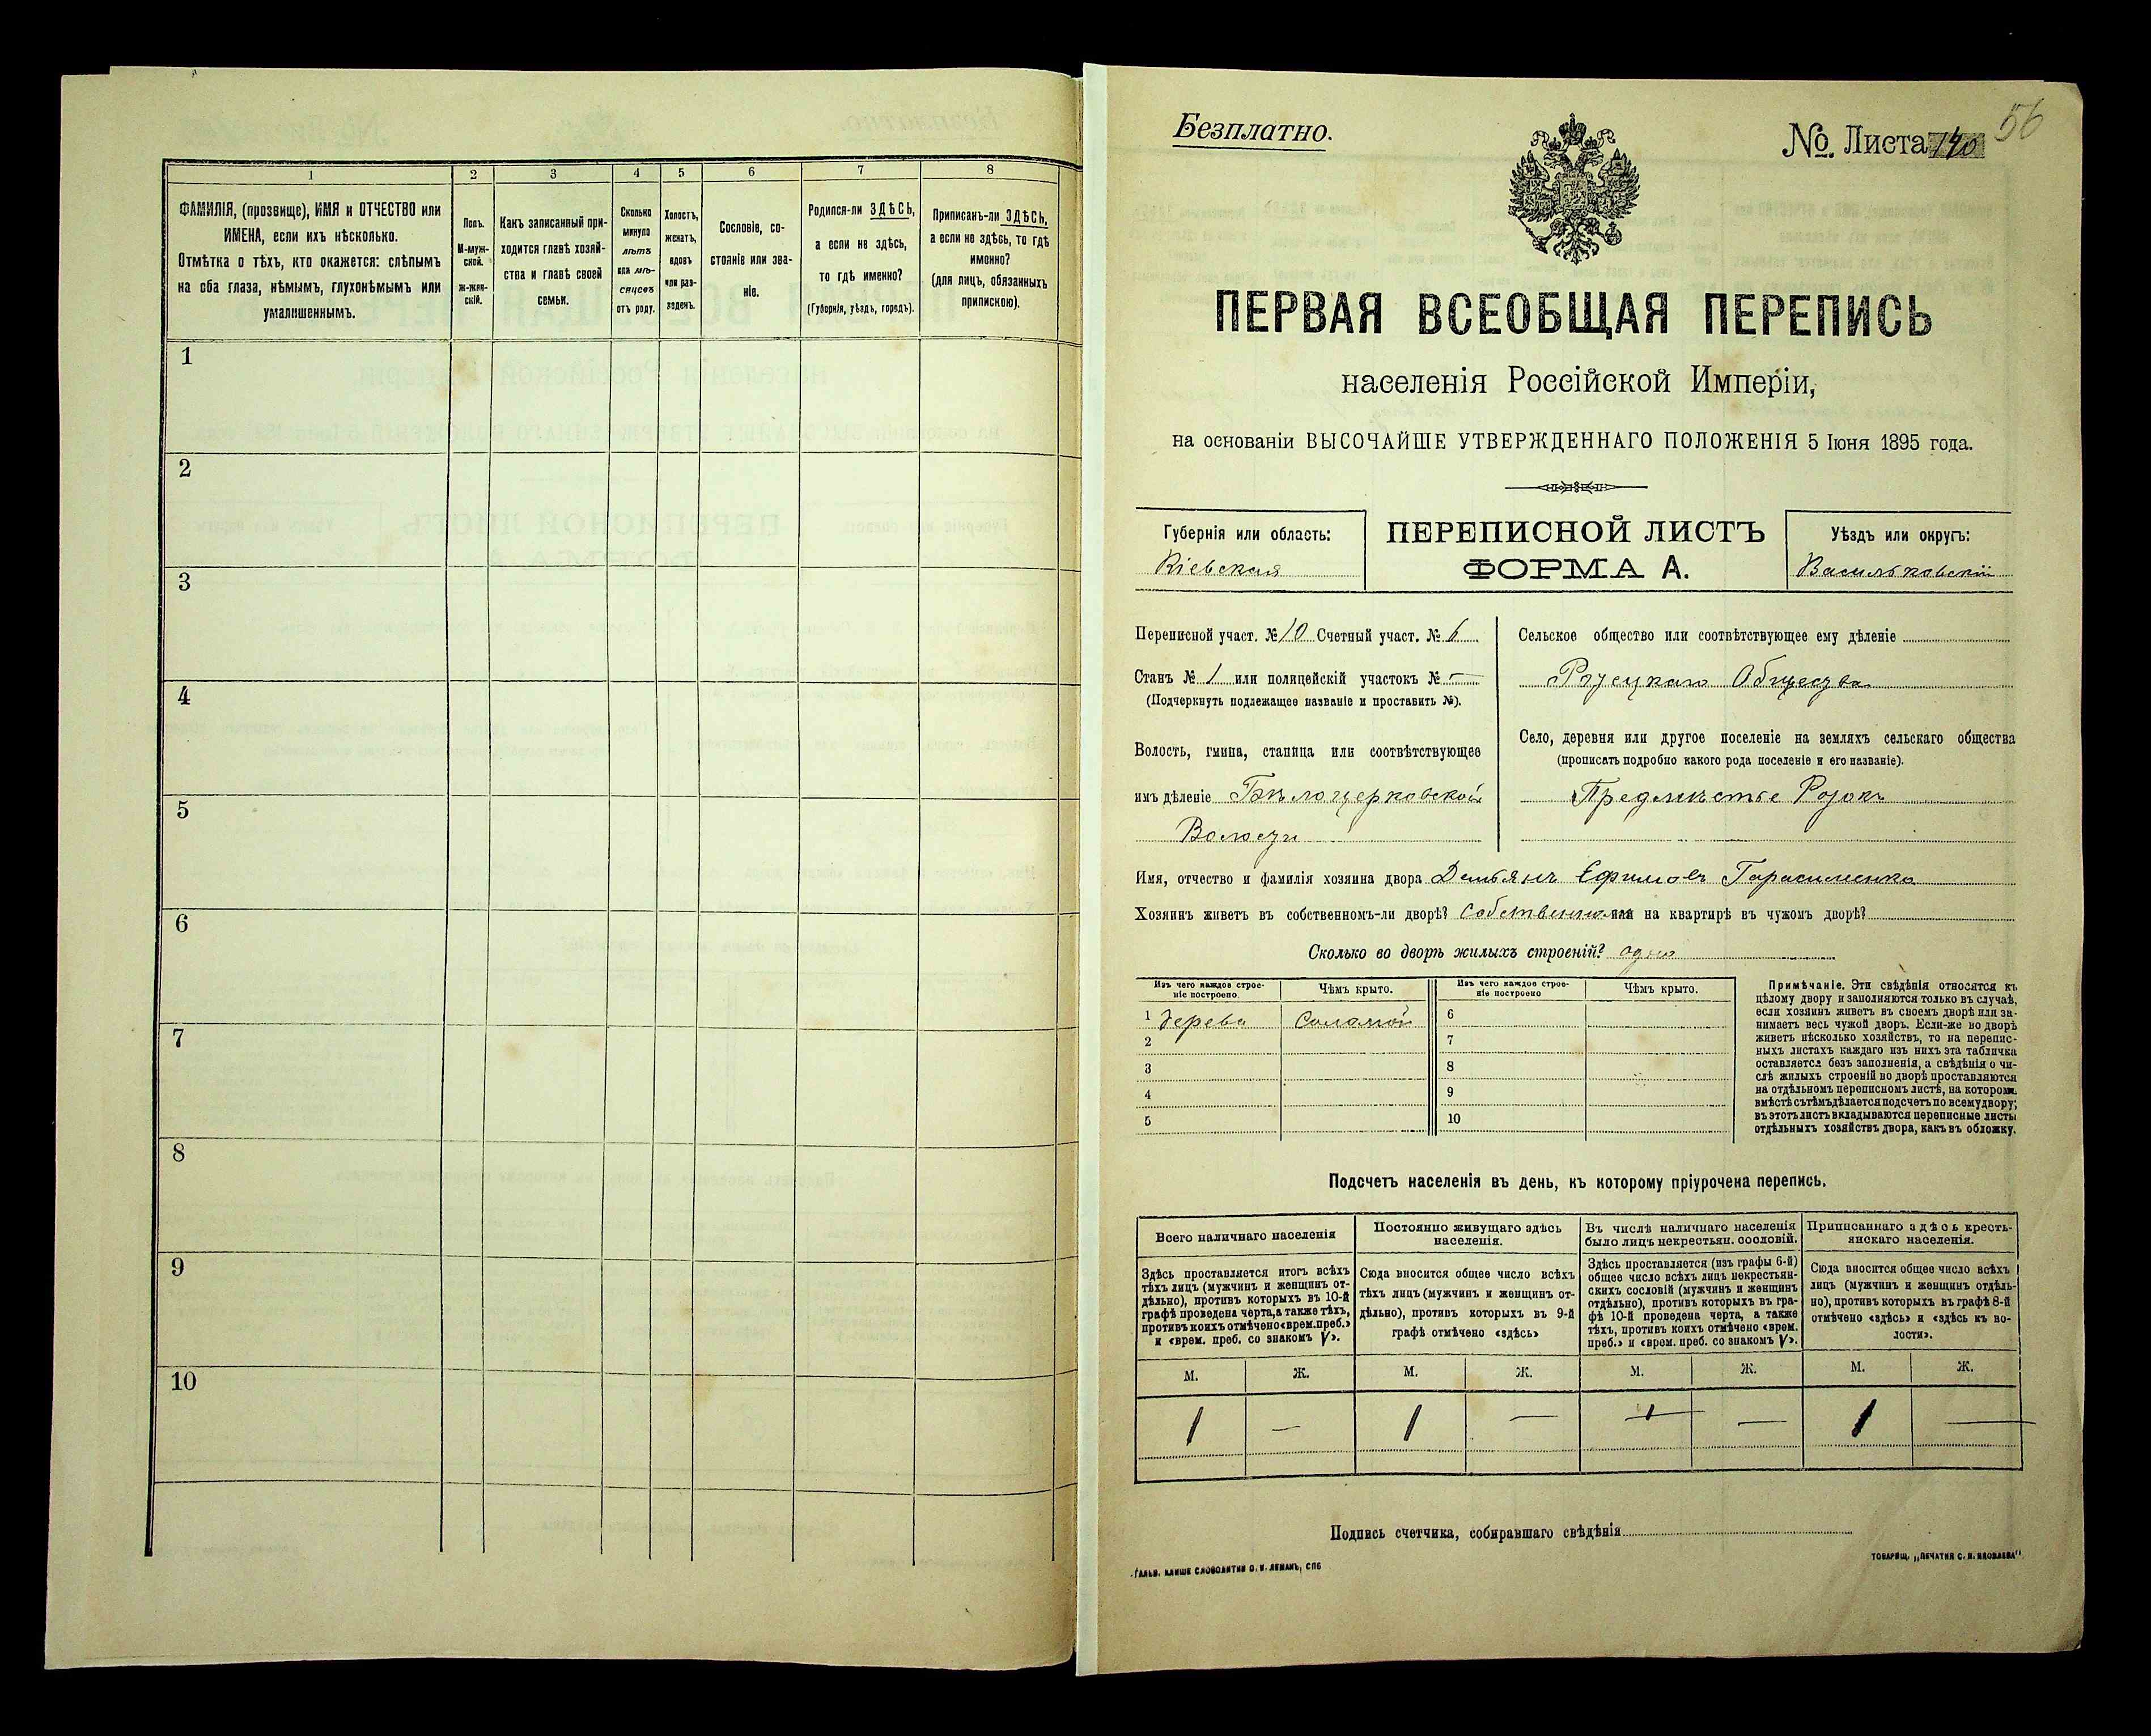 1
2
3
4
5
6
7
8
ФАМИЛІЯ, (прозвище), ИМЯ и ОТЧЕСТВО или
ИМЕНА, если ихъ нѣсколько.
Отмѣтка о тѣхъ, кто окажется: слѣпымъ
на оба глаза, нѣмымъ, глухонѣмымъ или
умалишеннымъ.
Полъ.
М-муж-
ской.
Ж-жен-
скій.
Какъ записанный при-
ходится главѣ хозяй-
ства и главѣ своей
семьи.
Сколько
минуло
лѣтъ
или мѣ-
сяцевъ
отъ роду.
Холостъ,
женатъ,
вдовъ
или раз-
веденъ.
Сословіе, со-
стояніе или зва-
ніе.
Родился-ли ЗДѢСЬ,
а если не здѣсь,
то гдѣ именно?
(Губернія, уѣздъ, городъ).
Приписанъ-ли ЗДѢСЬ,
а если не здѣсь, то гдѣ
именно?
(для лицъ, обязанныхъ
припискою).
1
2
3
4
5
6
7
8
9
10
Безплатно.
№. Листа 140
56
ПЕРВАЯ ВСЕОБЩАЯ ПЕРЕПИСЬ
населенія Россійской Имперіи,
на основаніи ВЫСОЧАЙШЕ УТВЕРЖДЕННАГО ПОЛОЖЕНІЯ 5 Іюня 1895 года.
Губернія или область:
Кіевская
ПЕРЕПИСНОЙ ЛИСТЪ
ФОРМА А.
Уѣздъ или округъ:
Васильковскій
Переписной участ. № 10 Счетный участ. № 6
Станъ № 1 или полицейскій участокъ № —
(Подчеркнуть подлежащее названіе и проставить №).
Волость, гмина, станица или соотвѣтствующее
имъ дѣленіе Бѣлоцерковской
Волости
Сельское общество или соотвѣтствующее ему дѣленіе
Общества
Село, деревня или другое поселеніе на земляхъ сельскаго общества
(прописать подробно какого рода поселеніе и его названіе).
Предмѣстье Ротокъ
Имя, отчество и фамилія хозяина двора Демьянъ Ефимовъ Гарасименко
Хозяинъ живетъ въ собственномъ-ли дворѣ? Собственномъ или на квартирѣ въ чужомъ дворѣ?
Сколько во дворѣ жилыхъ строеній? одно
Изъ чего каждое строе-
ніе построено.
Чѣмъ крыто.
Изъ чего каждое строе-
ніе построено
Чѣмъ крыто.
1 Дерева Соломой
2
3
4
5
6
7
8
9
10
Примѣчаніе. Эти свѣдѣнія относятся къ
цѣлому двору и заполняются только въ случаѣ,
если хозяинъ живетъ въ своемъ дворѣ или за-
нимаетъ весь чужой дворъ. Если-же во дворѣ
живетъ нѣсколько хозяйствъ, то на перепис-
ныхъ листахъ каждаго изъ нихъ эта табличка
оставляется безъ заполненія, а свѣдѣнія о чи-
слѣ жилыхъ строеній во дворѣ проставляются
на отдѣльномъ переписномъ листѣ, на которомъ
вмѣстѣ съ тѣмъ дѣлается подсчетъ по всему двору;
въ этотъ листъ вкладываются переписные листы
отдѣльныхъ хозяйствъ двора, какъ въ обложку.
Подсчетъ населенія въ день, къ которому пріурочена перепись.
Всего наличнаго населенія
Постоянно живущаго здѣсь
населенія.
Въ числѣ наличнаго населенія
было лицъ некрестьян. сословій.
Приписаннаго здѣсь кресть-
янскаго населенія.
Здѣсь проставляется итогъ всѣхъ
тѣхъ лицъ (мужчинъ и женщинъ от-
дѣльно), противъ которыхъ въ 10-й
графѣ проведена черта, а также тѣхъ,
противъ коихъ отмѣчено «врем. преб.»
и «врем. преб. со знакомъ V».
Сюда вносится общее число всѣхъ
тѣхъ лицъ (мужчинъ и женщинъ от-
дѣльно), противъ которыхъ въ 9-й
графѣ отмѣчено «здѣсь»
Здѣсь проставляется (изъ графы 6-й)
общее число всѣхъ лицъ некрестьян-
скихъ сословій (мужчинъ и женщинъ
отдѣльно), противъ которыхъ въ гра-
фѣ 10-й проведена черта, а также
тѣхъ, противъ коихъ отмѣчено «врем.
преб.» и «врем. преб. со знакомъ V».
Сюда вносится общее число всѣхъ
лицъ (мужчинъ и женщинъ отдѣль-
но), противъ которыхъ въ графѣ 8-й
отмѣчено «здѣсь» и «здѣсь къ во-
лости».
М. Ж. М. Ж. М. Ж. М. Ж.
1 — 1 — 1 — 1 —
Подпись счетчика, собиравшаго свѣдѣнія
ГАЛЬВ. КЛИШЕ СЛОВОЛИТНИ О. И. ЛЕМАНЪ, СПБ
ТОВАРИЩ. „ПЕЧАТНЯ С. П. ЯКОВЛЕВА“